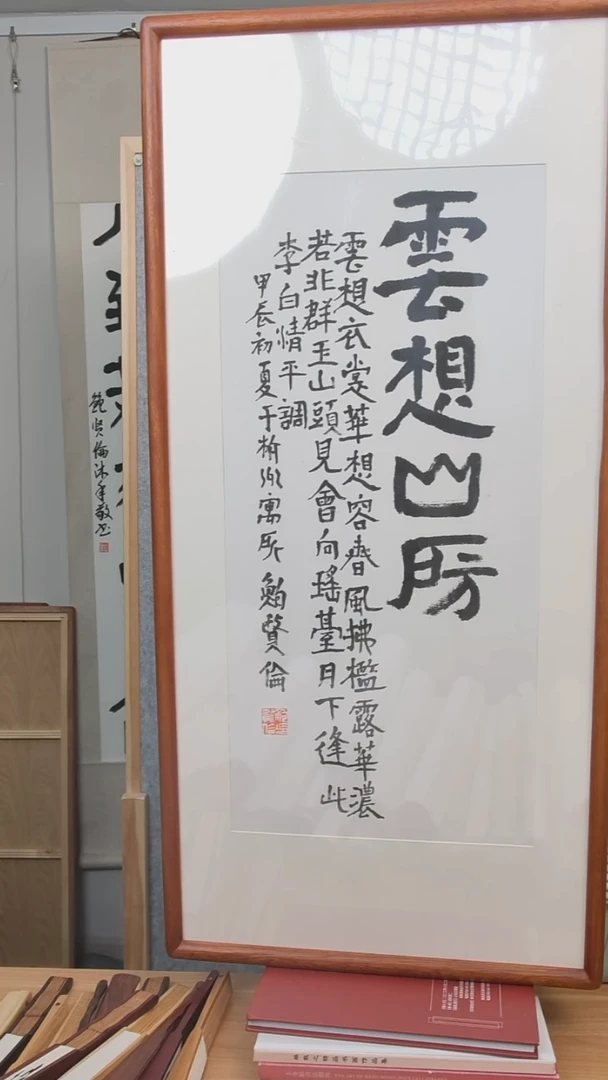 雲想山房
雲想衣裳華想容春風拂檻露華濃
若非群玉山頭見會向瑤臺月下逢此
李白情平調
甲辰初夏于州寓所鮑賢倫
鮑賢倫沐手敬書